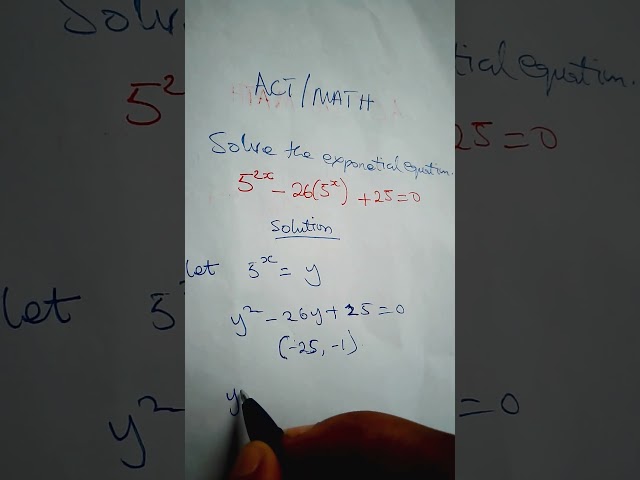 ACT/MATH
Solve the exponetial equation.
5^{2x} - 26(5^x) + 25 = 0
Solution
let 5^x = y
y^2 - 26y + 25 = 0
(-25, -1)
y